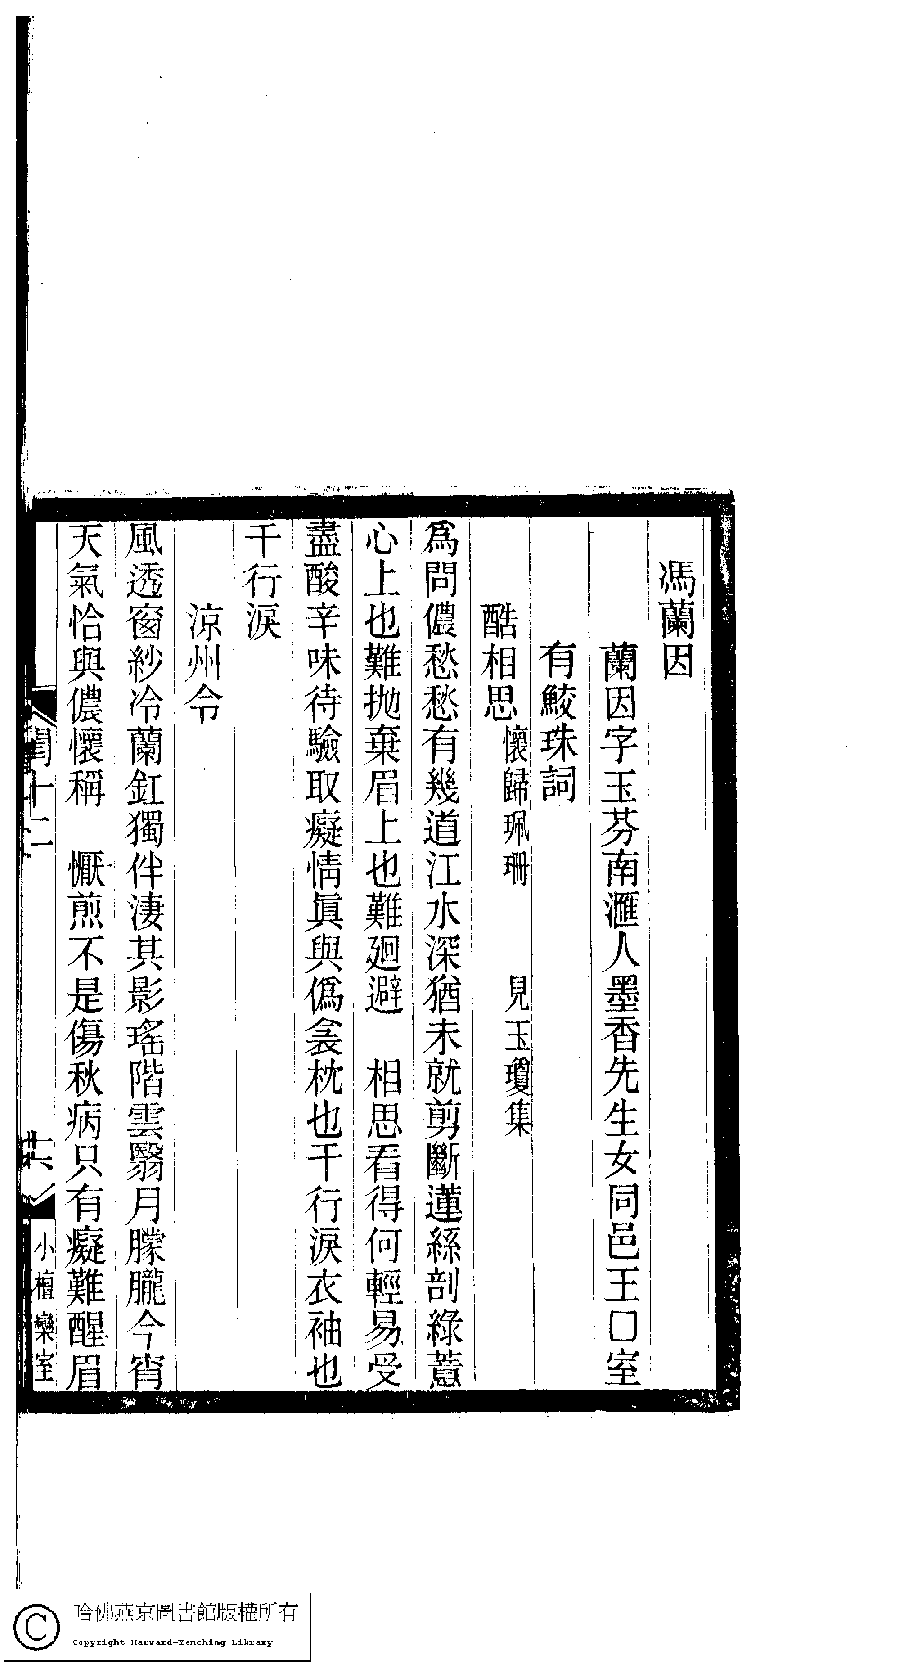 馮蘭因
蘭因字玉芬南滙人墨香先生女同邑王囗室
有鮫珠詞
酷相思懷歸珮珊　見玉瓊集
爲問儂愁愁有幾道江水深猶未就剪斷蓮絲剖綠薏
心上也難拋棄眉上也難廻避　相思看得何輕易受
盡酸辛味待驗取癡情眞與僞衾枕也千行淚衣袖也
千行淚
涼州令
風透窗紗冷蘭釭獨伴淒其影瑤階雲翳月朦朧今宵
天氣恰與儂懷稱　懨煎不是傷秋病只有癡難醒眉
閨十二
六
小檀欒室
哈佛燕京圖書館版權所有
Copyright Harvard-Yenching Library